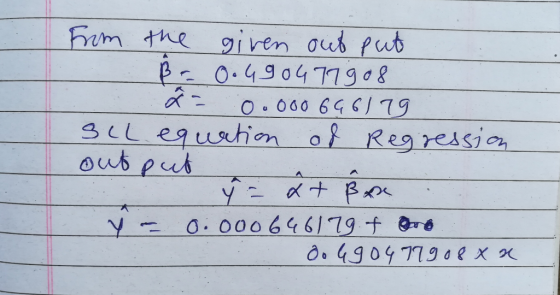 From the given out put
β̂ = 0.490477908
α̂ = 0.000646179
SCL equation of Regression
out put
ŷ = α̂ + β̂ x x
ŷ = 0.000646179 +
0.490477908 x x